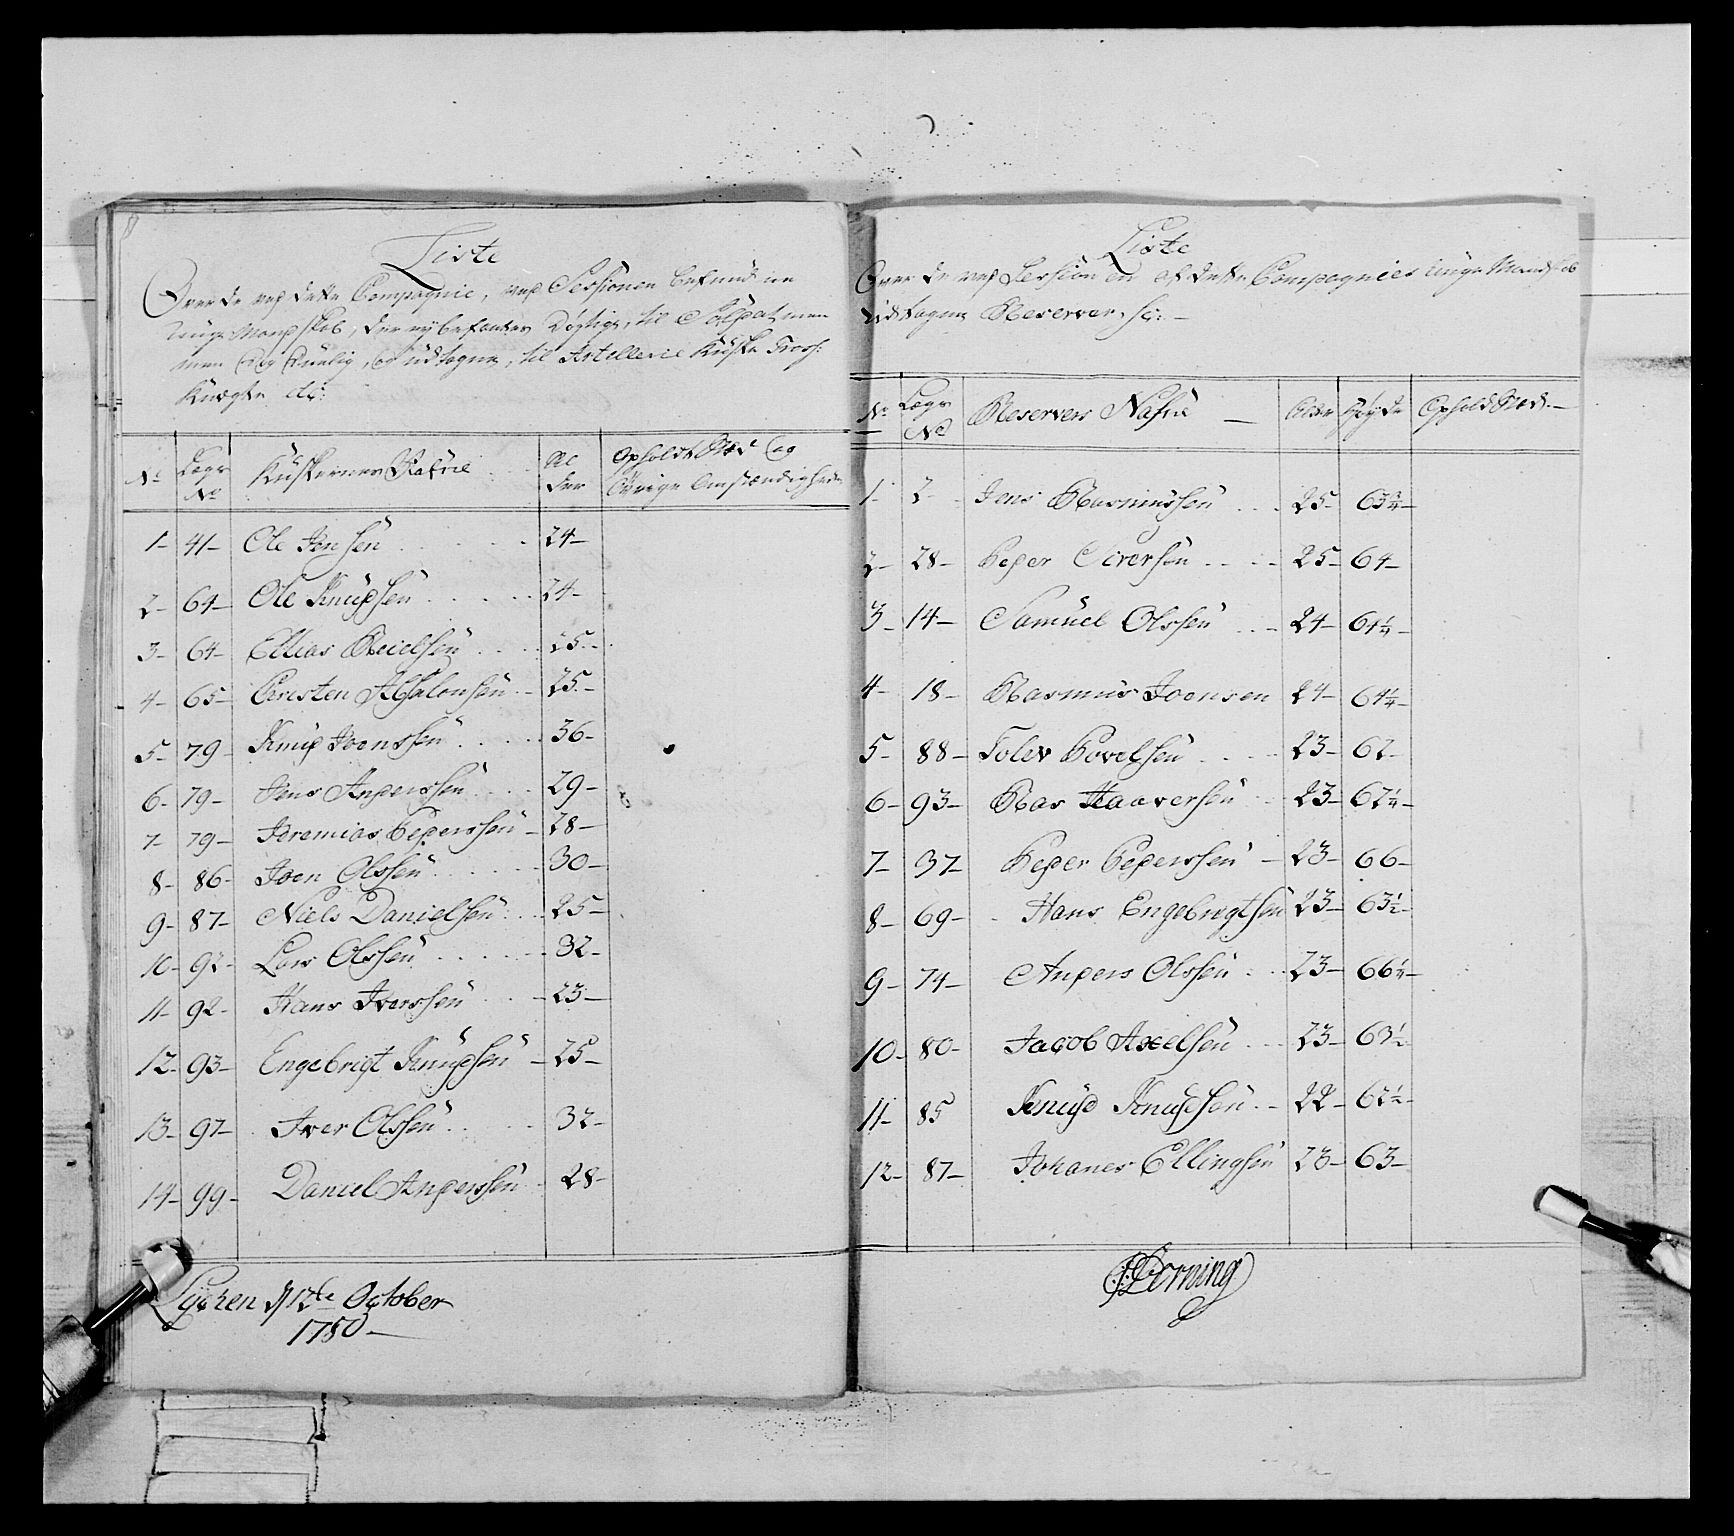 Liste
Over de ved dette Compagnie, ved Sessionen befundene
unge Mandskab, der ey befantes Dygtige, til Soldat, men
men og udtagne, til Artellerie Kuske Tross:
Knegte etc:
No Lægs No Kuskernes Nafne Alder Opholds Stæd og Øvrige Omstændigheder
1- 41- Ole Jensen 24-
2- 64- Ole Knudsen 24-
3- 64- Ellias Reielsen 25-
4- 65- Christen Absalonsen 25-
5- 79- Knud Joenssen 36-
6- 79- Jens Anderssen 29-
7- 79- Jeremias Pederssen 28-
8- 86- Joen Olssen 30-
9- 87- Niels Danielsen 25-
10- 92- Lars Olssen 32-
11- 92- Hans Iverssen 23-
12- 93- Engebrigt Knudsen 25-
13- 97- Iver Olssen 32-
14- 99- Daniel Anderssen 28-
Lychen d 12te October
1780-
Liste
Over de ved Session en af dette Compagnies unge Mandskab
udtagne Reserver, se: -
No Lægs No Reservers Nafne - Alder Høyde Opholds Stæd. -
1- 2- Jens Rasmussen 25- 63 3/4-
2- 28- Peder Siversen 25- 64-
3- 14- Samuel Olssen 24- 64 1/4-
4- 18- Rasmus Joensen 24- 64 1/4-
5- 88- Tolev Povelsen 23- 62-
6- 93- Ras Haaversen 23- 62 1/4-
7- 37- Peder Pederssen 23- 66-
8- 69- Hans Engebrigtsen 23- 63 1/2-
9- 74- Anders Olssen 23- 66 1/4-
10- 80- Jacob Axelsen 23- 63 1/2
11- 85 Knud Knudsen 22- 62 1/2-
12- 87- Johanes Ellingsen 23- 63-
Dorning